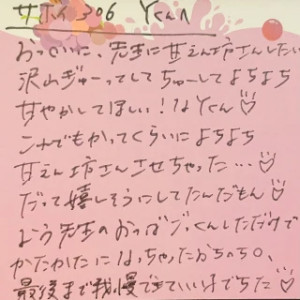 サホイ306 Yくんへ
おっぱいに、先生に甘えん坊さんしたい
沢山ぎゅーってしてちゅーしてよちよち
甘やかしてほしい！なYくん♡
こっちでもかってくらいによちよち
甘えん坊さんさせちゃった…♡
だって嬉しそうにしてたんだもん♡
よう先生のおっぱいごっくんしただけで
かたかたになっちゃったおちの〇、
最後まで我慢できていい子でちた♡